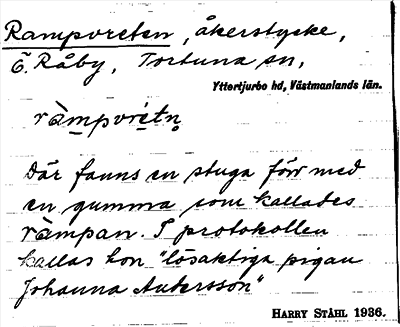 Rampvreten, åkerstycke,
Ö. Råby, Tortuna sn,
Yttertjurbo hd, Västmanlands län.
ràmpvrètn
Där fanns en stuga förr med
en gumma som kallades
ràmpan. I protokollen
kallas hon "lösaktiga pigan
Johanna Andersson"
HARRY STÅHL 1936.